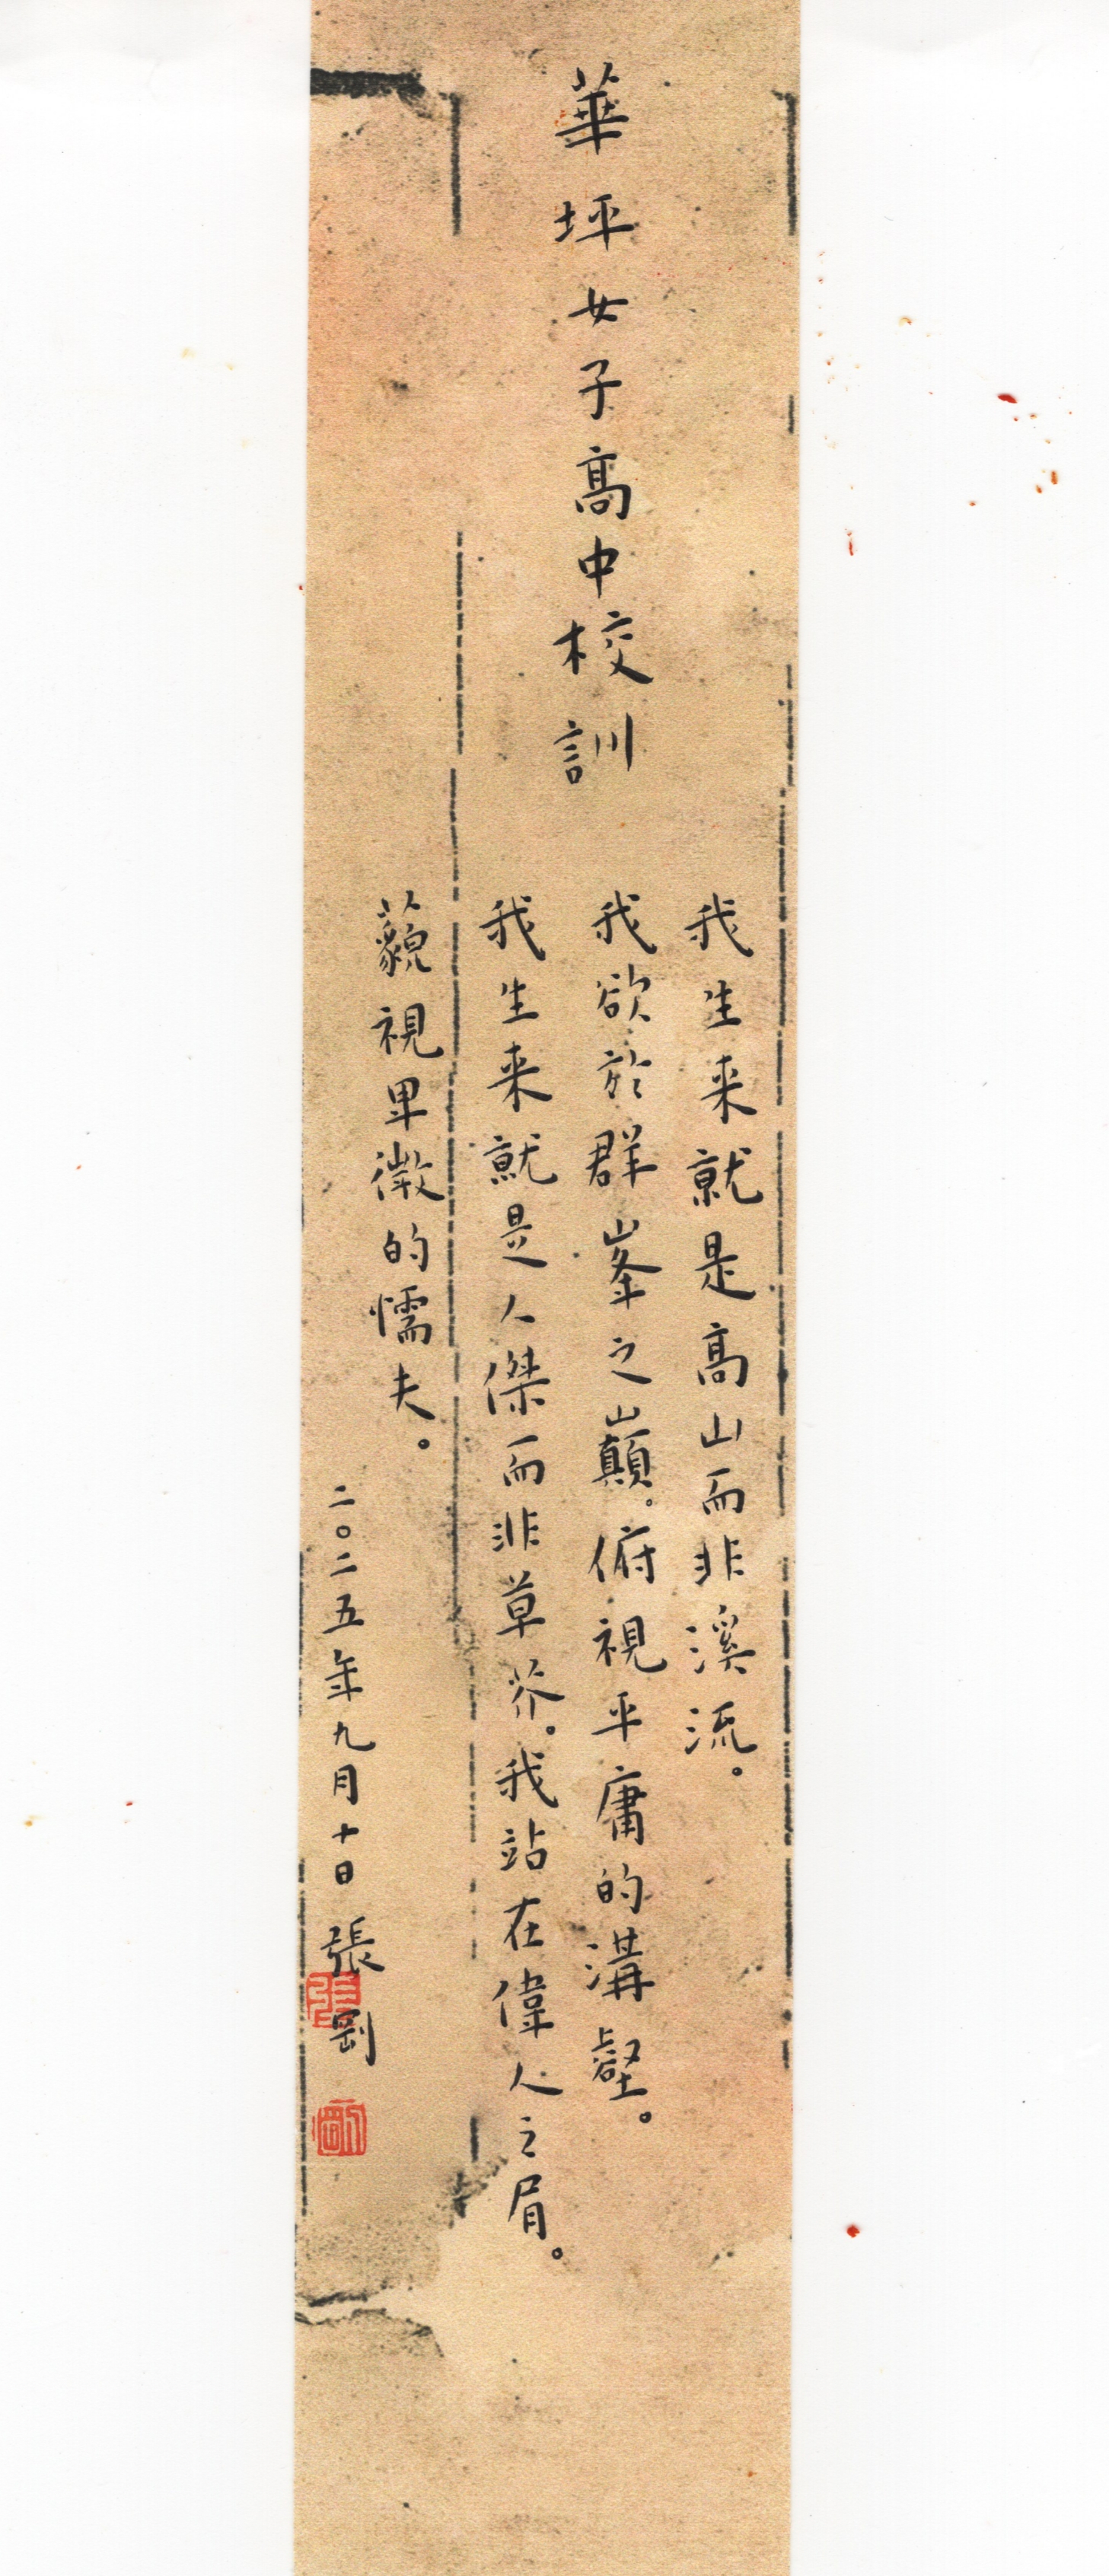 華坪女子高中校訓
我生来就是高山而非溪流。
我欲於群峯之巔。俯視平庸的溝壑。
我生来就是人傑而非草芥。我站在偉人之肩。
藐視卑微的懦夫。
二〇二五年九月十日 張剛